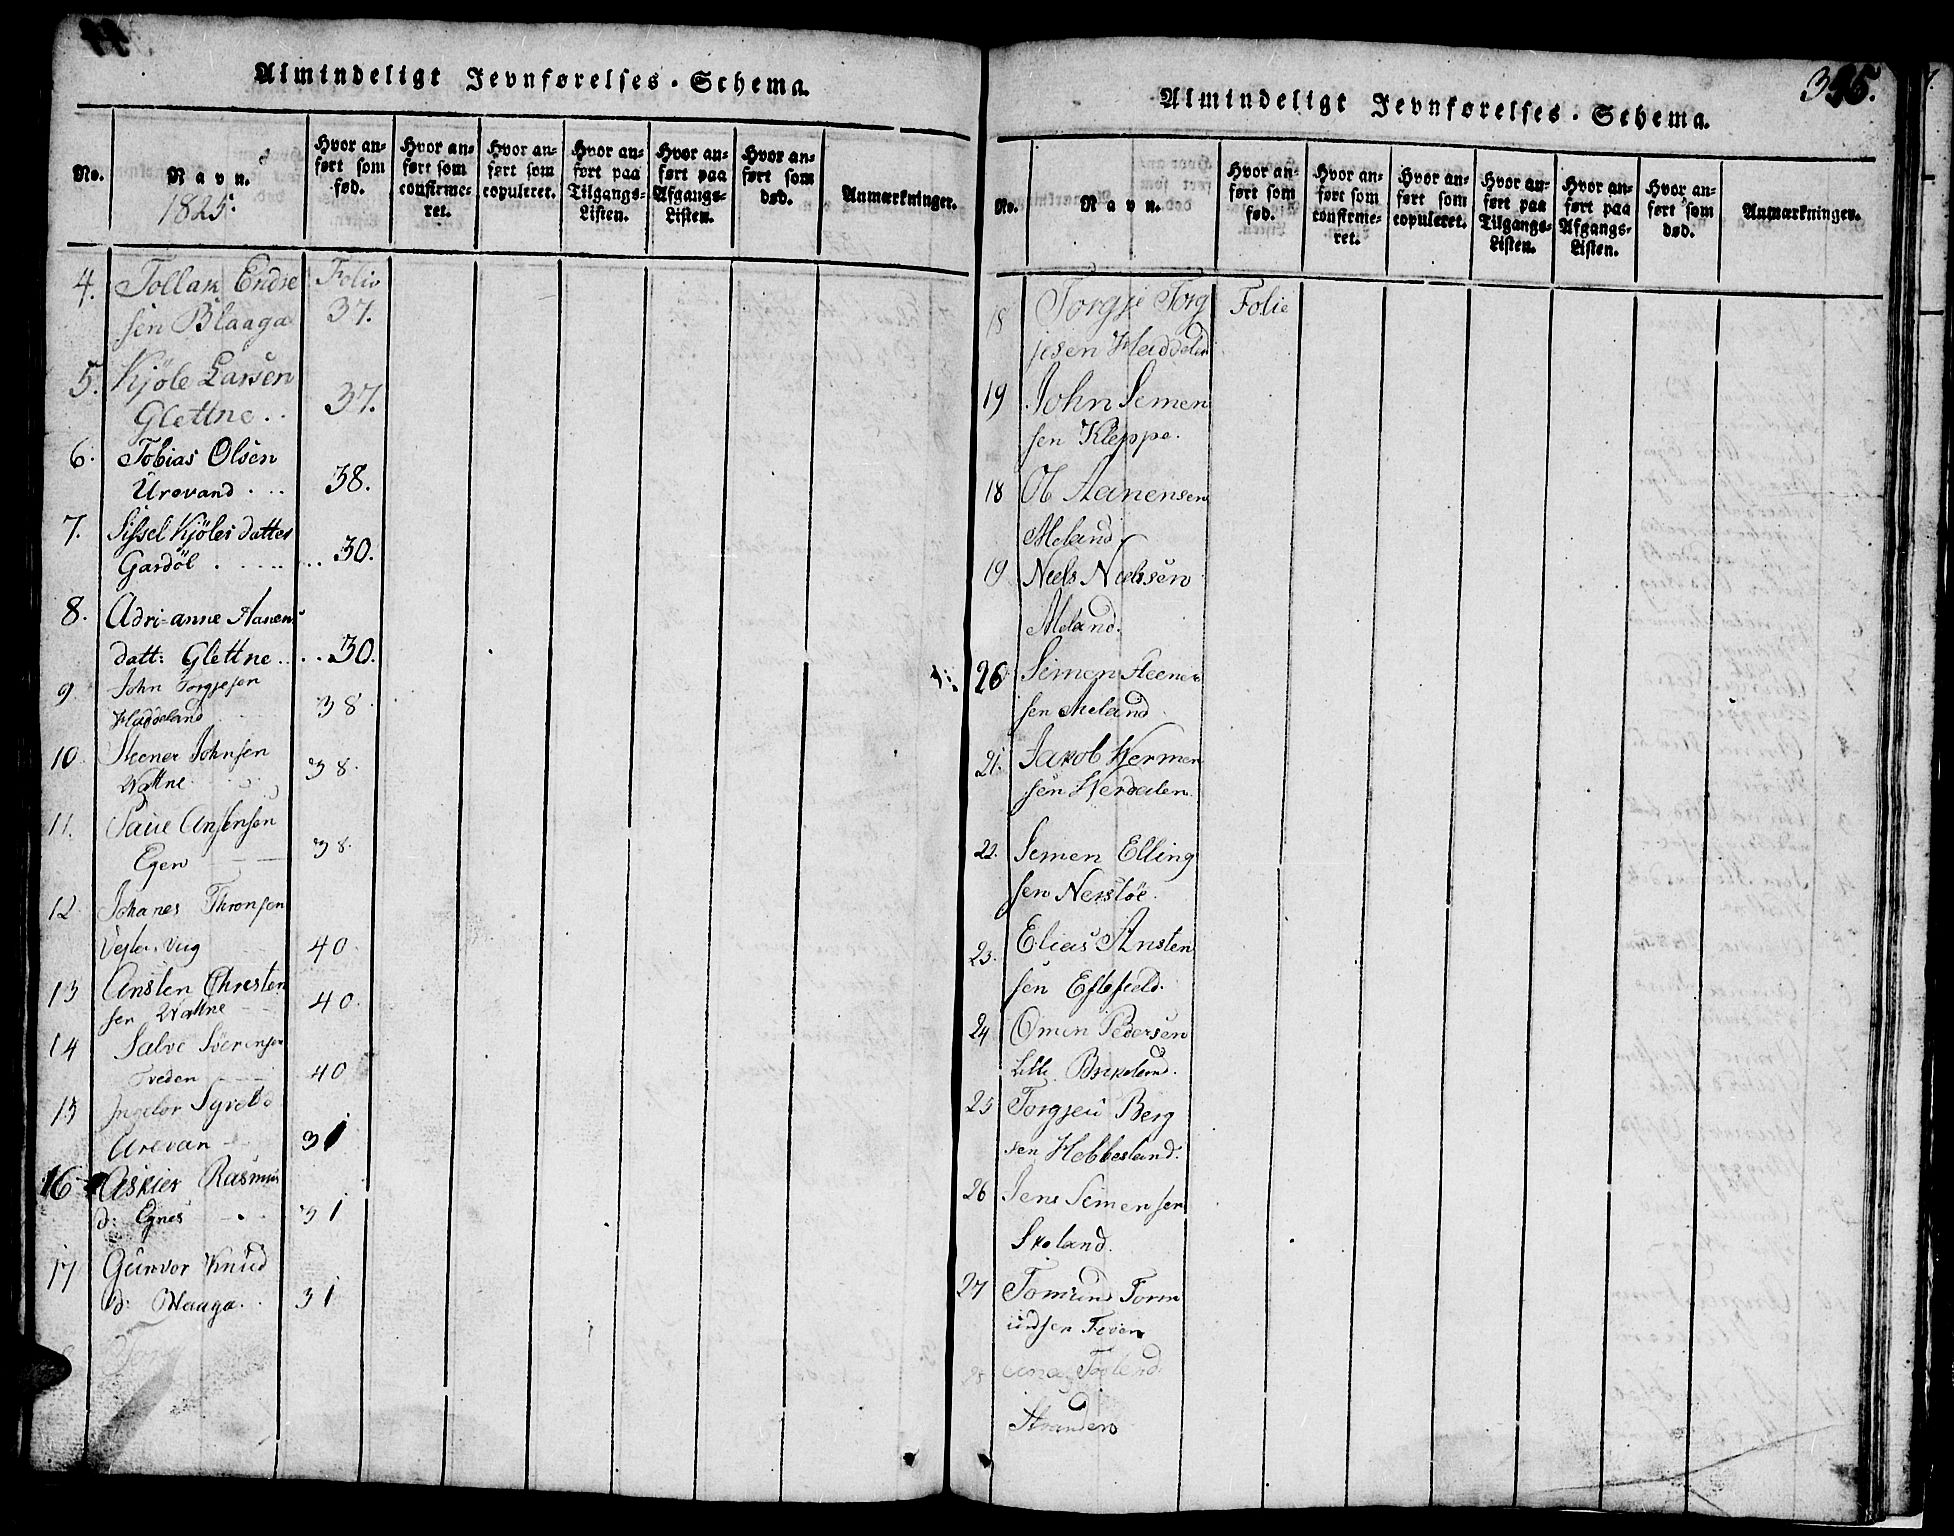 Almindeligt Jevnførelses-Schema.
No.
Navn.
1825.
Hvor anført som fød.
Hvor anført som confirmeret.
Hvor anført som copuleret.
Hvor anført paa Tilgangs-Listen.
Hvor anført paa Afgangs-Listen.
Hvor anført som død.
Anmærkninger.
4. Tollak Endre Folio
sen Blaaga 37.
5. Kjöle Larsen
Glettne.. 37.
6. Tobias Olsen
Urevand . .. 38.
7. Sissel Kjöles datter
Gardöl . . . . . . . 30.
8. Adri=anne Aanens
datt: Glettne . . . . 30.
9 John Torgjesen
Haddeland 38.
10 Steener Johnsen
Wattne 38.
11. Save Ansensen
Egen 38.
12 Johanes Thronsen
Vester 40.
13 Ansten Christen
sen Wattne 40.
14 Salve Söerensen
Tveden 40
15 Syvels
Urevan 31
16 Askier Rasmus
d: Egnes 31
17 Gunvor Knud
d: Blaaga.. 31
335.
Almindeligt Jevnførelses-Schema.
No.
Navn.
Hvor anført som fød.
Hvor anført som confirmeret.
Hvor anført som copuleret.
Hvor anført paa Tilgangs-Listen.
Hvor anført paa Afgangs-Listen.
Hvor anført som død.
Anmærkninger.
18 Torgje Torg Folie
jesen Haddelan
19 John Semen
sen Kleppe.
18 Ol Aanensen
Meland.
19 Niels Nielsen
Meland.
20 Simen Steener
sen Meland
21. Jakob Hermen
sen Herdalen.
22. Semen Elling
sen Nerstöe.
23. Elias Ansten
sen Eftefield.
24 Omen Pedersen
Lille Birkeland.
25 Torgjeu Berg
sen Hebbesland.
26 Jens Semensen
Skeland.
27 Tomund Torm
undsen Tveen
28
Stranden